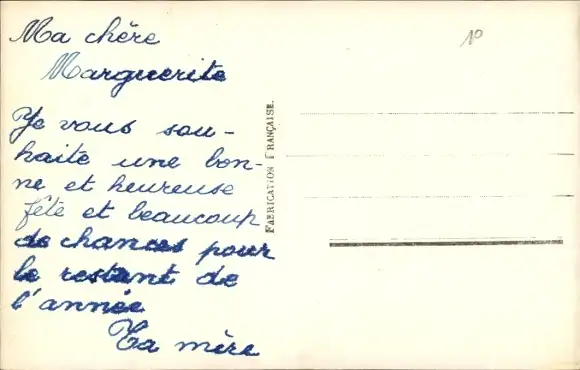 Ma chère
Marguerite
Je vous sou-
haite une bon-
ne et heureuse
fête et beaucoup
de chances pour
le restant de
l'année
Ta mère
FABRICATION FRANÇAISE.
10